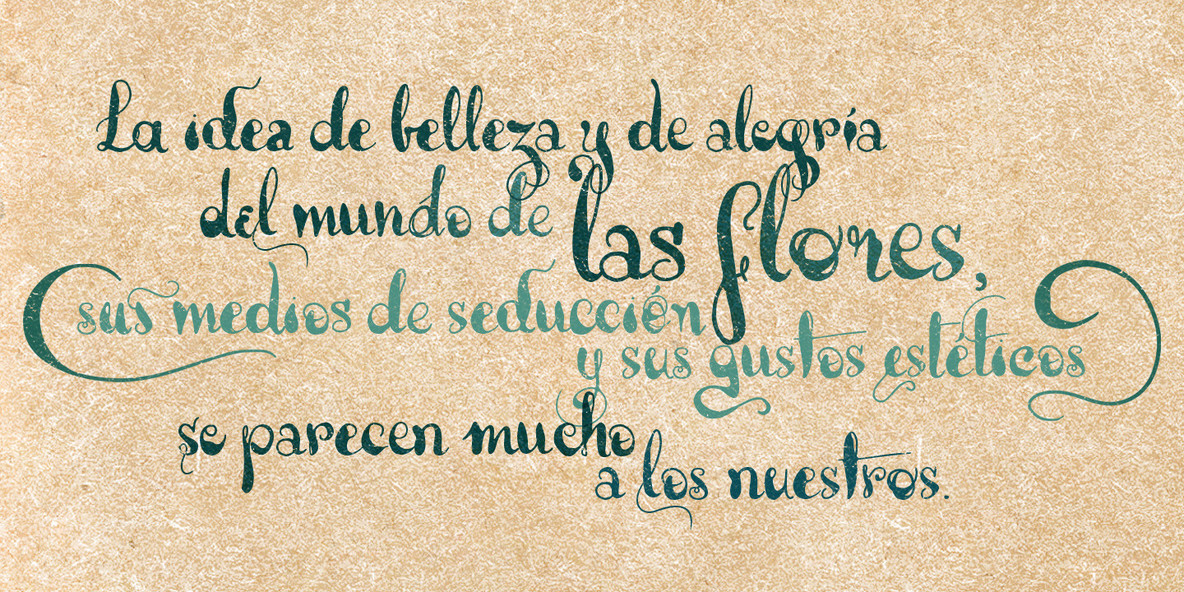 La idea de belleza y de alegría
del mundo de las flores,
sus medios de seducción
y sus gustos estéticos
se parecen mucho
a los nuestros.